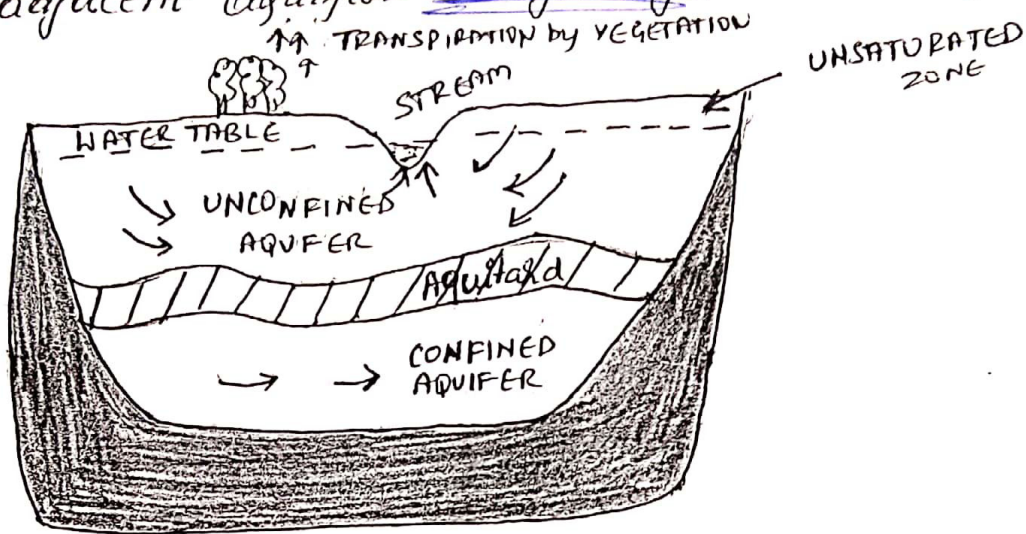 adjacent
TRANSPIRATION by VEGETATION
UNSATURATED
ZONE
STREAM
WATER TABLE
UNCONFINED
AQUFER
Aquitard
CONFINED
AQUIFER